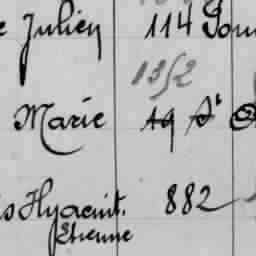 Julien 114
13/2
Marie 19 St
Hyacint. 882
Etienne